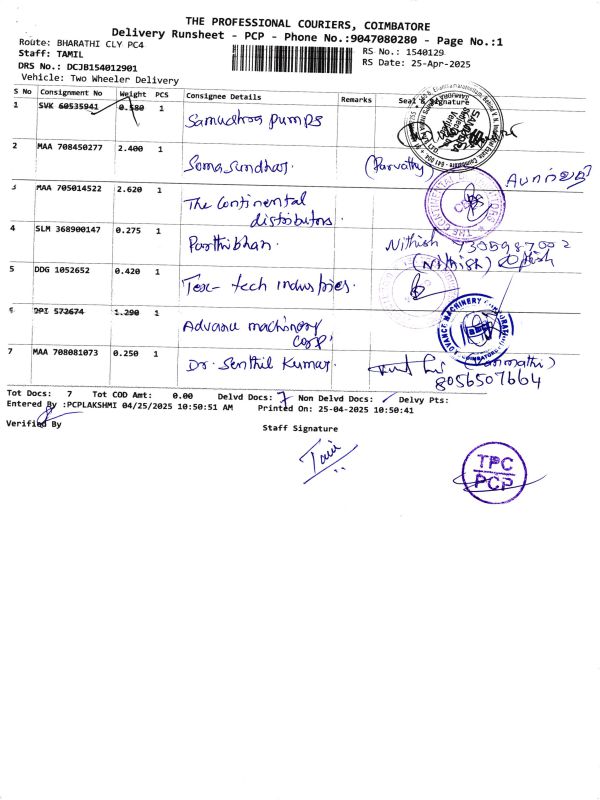 THE PROFESSIONAL COURIERS, COIMBATORE
Delivery Runsheet - PCP - Phone No.:9047080280 - Page No.:1
Route: BHARATHI CLY PC4
RS No.: 1540129
Staff: TAMIL
RS Date: 25-Apr-2025
DRS No.: DCJB154012901
Vehicle: Two Wheeler Delivery
S No Consignment No Weight PCS Consignee Details Remarks Seal & Signature
1 SVK 60535941 0.580 1 Samudhra pumps
2 MAA 708450277 2.400 1 Somasundhar. (Parvathy)
3 MAA 705014522 2.620 1 The Continental distributors.
4 SLM 368900147 0.275 1 Parthibhan. Nithish
(Nithish)
5 DDG 1052652 0.420 1 Tex-tech industries.
6 DPI 572674 1.290 1 Advance machinery Corp.
ADVANCE MACHINERY CORPORATION
COIMBATORE
7 MAA 708081073 0.250 1 Dr. Senthil Kumar.
8056507664
Tot Docs: 7 Tot COD Amt: 0.00 Delvd Docs: 7 Non Delvd Docs: Delvy Pts:
Entered By :PCPLAKSHMI 04/25/2025 10:50:51 AM Printed On: 25-04-2025 10:50:41
Verified By
Staff Signature
TPC
PCP